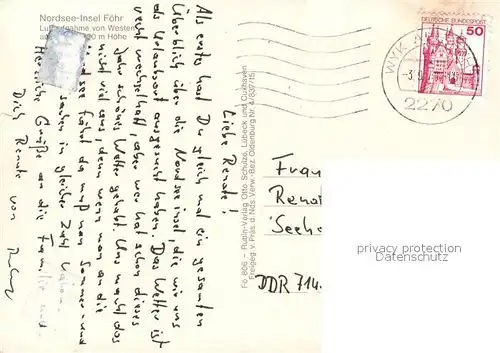 Nordsee-Insel Föhr
Luftaufnahme von Westen
aus 20 m Höhe
Liebe Renate!
Als erste hast Du gleich mal ein gesamten
Überblick über die Nordseeinsel, die wir uns
als Urlaubsort ausgesucht haben. Das Wetter ist
recht wechselhaft, aber wer hat schon dieses
Jahr schönes Wetter gehabt. Uns macht das
nicht viel aus, denn wenn man an die
Nordsee fährt da muß man Sommer- und
sachen in gleicher Zahl haben.
Herzliche Grüße an die Familie und
Dich Renate von
Fo 806 – Rubin-Verlag Otto Schulze, Lübeck und Cuxhaven
Freigeg. v. Präs. d. Nds. Verw.-Bez. Oldenburg Nr. 4/037/15
DEUTSCHE BUNDESPOST
50
WYK
2270
Frau
DDR 714
privacy protection
Datenschutz